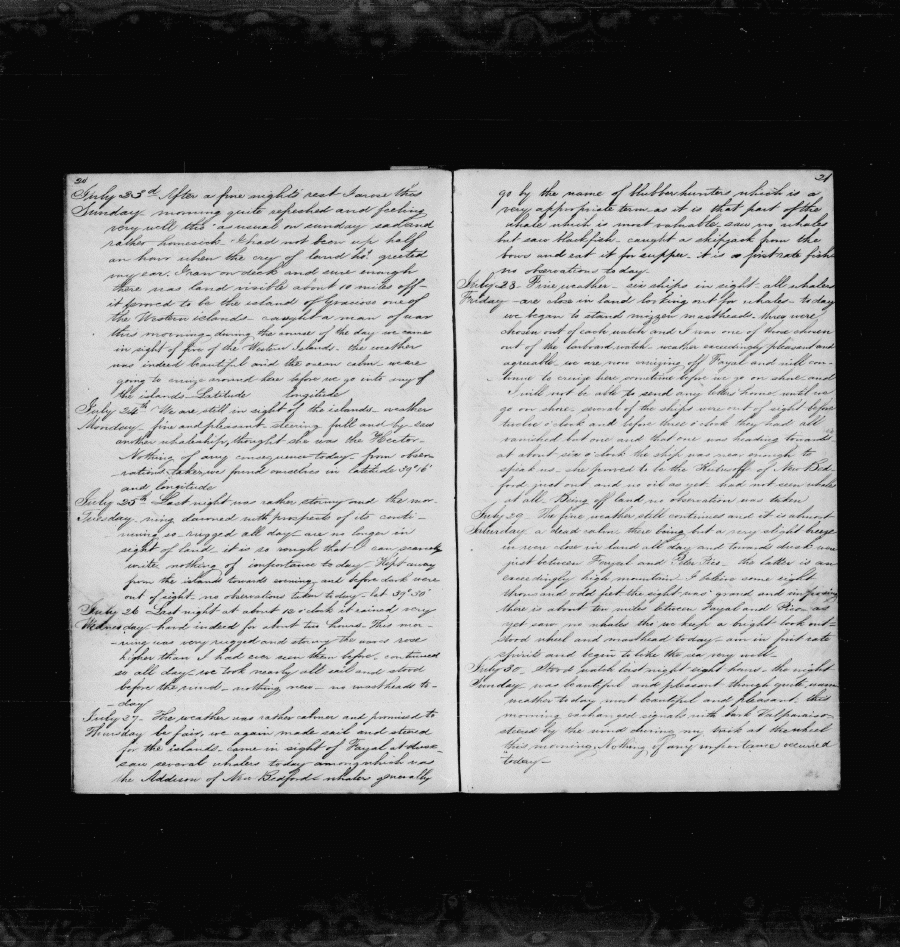 20
July 23d After a fine night's rest I arose this
Sunday morning quite refreshed and feeling
very well tho' as usual on sunday sad and
rather homesick. I had not been up half
an hour when the cry of land ho! greeted
my ear. I ran on deck and sure enough
there was land visible about 10 miles off-
it proved to be the island of Graciosa one of
the Western islands - a man of war
this morning - during the course of the day we came
in sight of five of the Western Islands. the weather
was indeed beautiful and the ocean calm. we are
going to cruize around here before we go into any of
the islands - Latitude longitude
July 24th We are still in sight of the islands. weather
Monday. fine and pleasant. steering full and by. saw
another whaleship, thought she was the Hector-
Nothing of any consequence today - from obser-
vations taken we found ourselves in latitude 39° 16'
and longitude
July 25th Last night was rather stormy and the mor-
Tuesday. ning dawned with prospects of its conti-
nuing so - rugged all day - are no longer in
sight of land. it is so rough that I can scarcely
write. nothing of importance today - Kept away
from the islands towards evening and before dark were
out of sight. no observations taken today - lat 39° 30'
July 26 Last night at about 12 o'clock it rained very
Wednesday hard indeed for about two hours. This mor-
-ning was very rugged and stormy the waves rose
higher than I had ever seen them before. continued
so all day - we took nearly all sail and stood
before the wind - nothing new - no mastheads to-
-day
July 27 - The weather was rather calmer and promised to
Thursday be fair, we again made sail and steered
for the islands. Came in sight of Fayal at
saw several whalers today among which was
the Addison of New Bedford whalers generally
21
go by the name of blubberhunters which is a
very appropriate term as it is that part of the
whale which is most valuable. saw no whales
but saw blackfish - caught a skipjack from the
bows and eat it for supper. it is a first rate fish
no observations today.
July 28. Fine weather - six ships in sight all whalers
Friday - are close in land looking out for whales - today
we began to stand mizzen mastheads. three were
chosen out of each watch and I was one of those chosen
out of the larboard watch - weather exceedingly pleasant and
agreeable. we are now cruizing off Fayal and will con-
tinue to cruize here sometime before we go on shore and
I will not be able to send any letters home until we
go on shore. several of the ships were out of sight before
twelve o'clock and before three o'clock they had all
vanished but one and that one was heading towards us
at about six o'clock the ship was near enough to
speak us. she proved to be the of New Bed-
ford just out and no oil as yet. had not seen whales
at all. Being off land no observation was taken
July 29. The fine weather still continues and it is almost
Saturday a dead calm there being but a very slight breeze
in were close in land all day and towards dusk were
just between Fayal and Peter Pico - the latter is an
exceedingly high mountain I believe some eight
thousand odd feet the sight was grand and imposing
there is about ten miles between Fayal and Pico as
yet saw no whales tho we keep a bright look out-
stood wheel and masthead today - am in first rate
spirits and begin to like the sea very well.
July 30. Stood watch last night eight hours - the night
Sunday was beautiful and pleasant though quite warm
weather today most beautiful and pleasant. this
morning exchanged signals with bark Valparaiso
steered by the wind during my trick at the wheel
this morning. Nothing of any importance occurred
today -